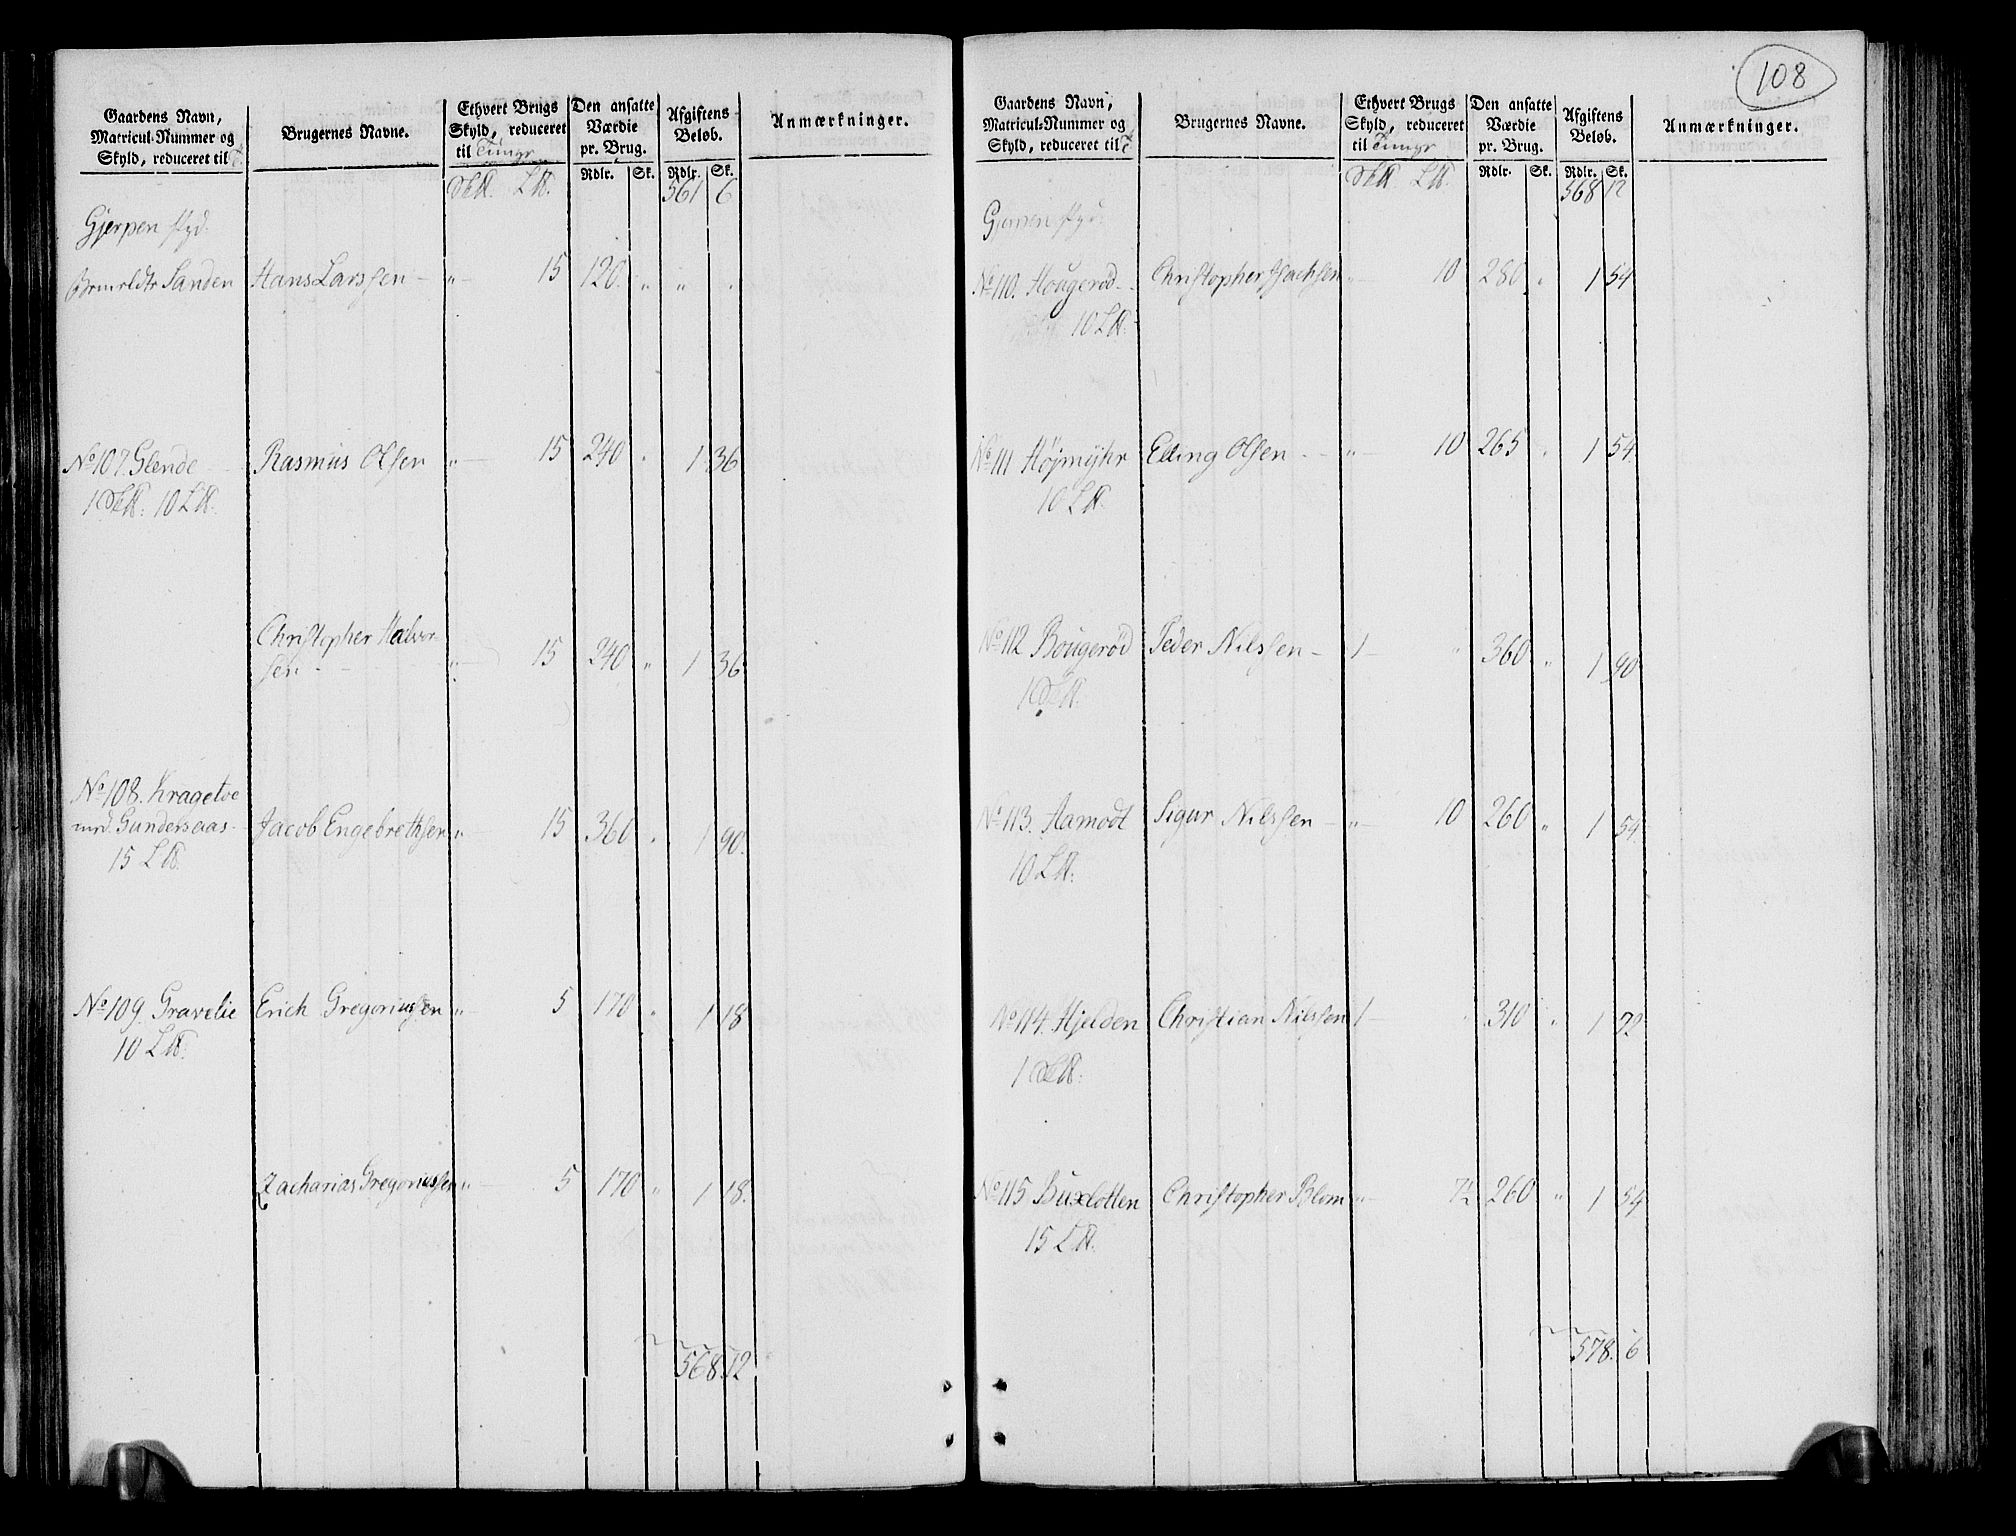 108
Gaardens Navn, Matricul-Nummer og Skyld, reduceret til
Brugernes Navne.
Ethvert Brugs Skyld, reduceret til Tunge
Den ansatte Værdie pr. Brug.
Afgiftens Beløb.
Anmærkninger.
Rdlr. Sk. Rdlr. Sk.
561 6
Gjerpen
Sanden Hans Larssen - " 15 120 " " "
No 107. Glende Rasmus Olssen " 15 240 " 1 36
10
Christopher Halvor-
sen - " 15 240 " 1 36
No 108. Kragetoe
Gundersaas Jacob Engebrethsen " 15 360 " 1 90.
15
No 109. Gravelie Erich Gregoriussen " 5 170 " 1 18
10
Zacharias Gregoriussen " 5 170 " 1 18.
568. 12
Gaardens Navn, Matricul-Nummer og Skyld, reduceret til
Brugernes Navne.
Ethvert Brugs Skyld, reduceret til Tunge
Den ansatte Værdie pr. Brug.
Afgiftens Beløb.
Anmærkninger.
Rdlr. Sk. Rdlr. Sk.
568 12
No 110. Hougerød Christopher Isachsen " 10 280 " 1 54
10
No 111 Höjmÿhr Elling Olssen " 10 265 " 1 54
10
No 112 Bougerød Peder Nilssen - 1 " 360 " 1 90
1
No 113. Aamodt Sigur Nilssen " 10 260 " 1 54
10
No 114. Hjelden Christian Nilssen 1 " 310 " 1 72
1
No 115 Buxlotten Christopher Blom " 7½ 260 " 1 54
15
578. 6